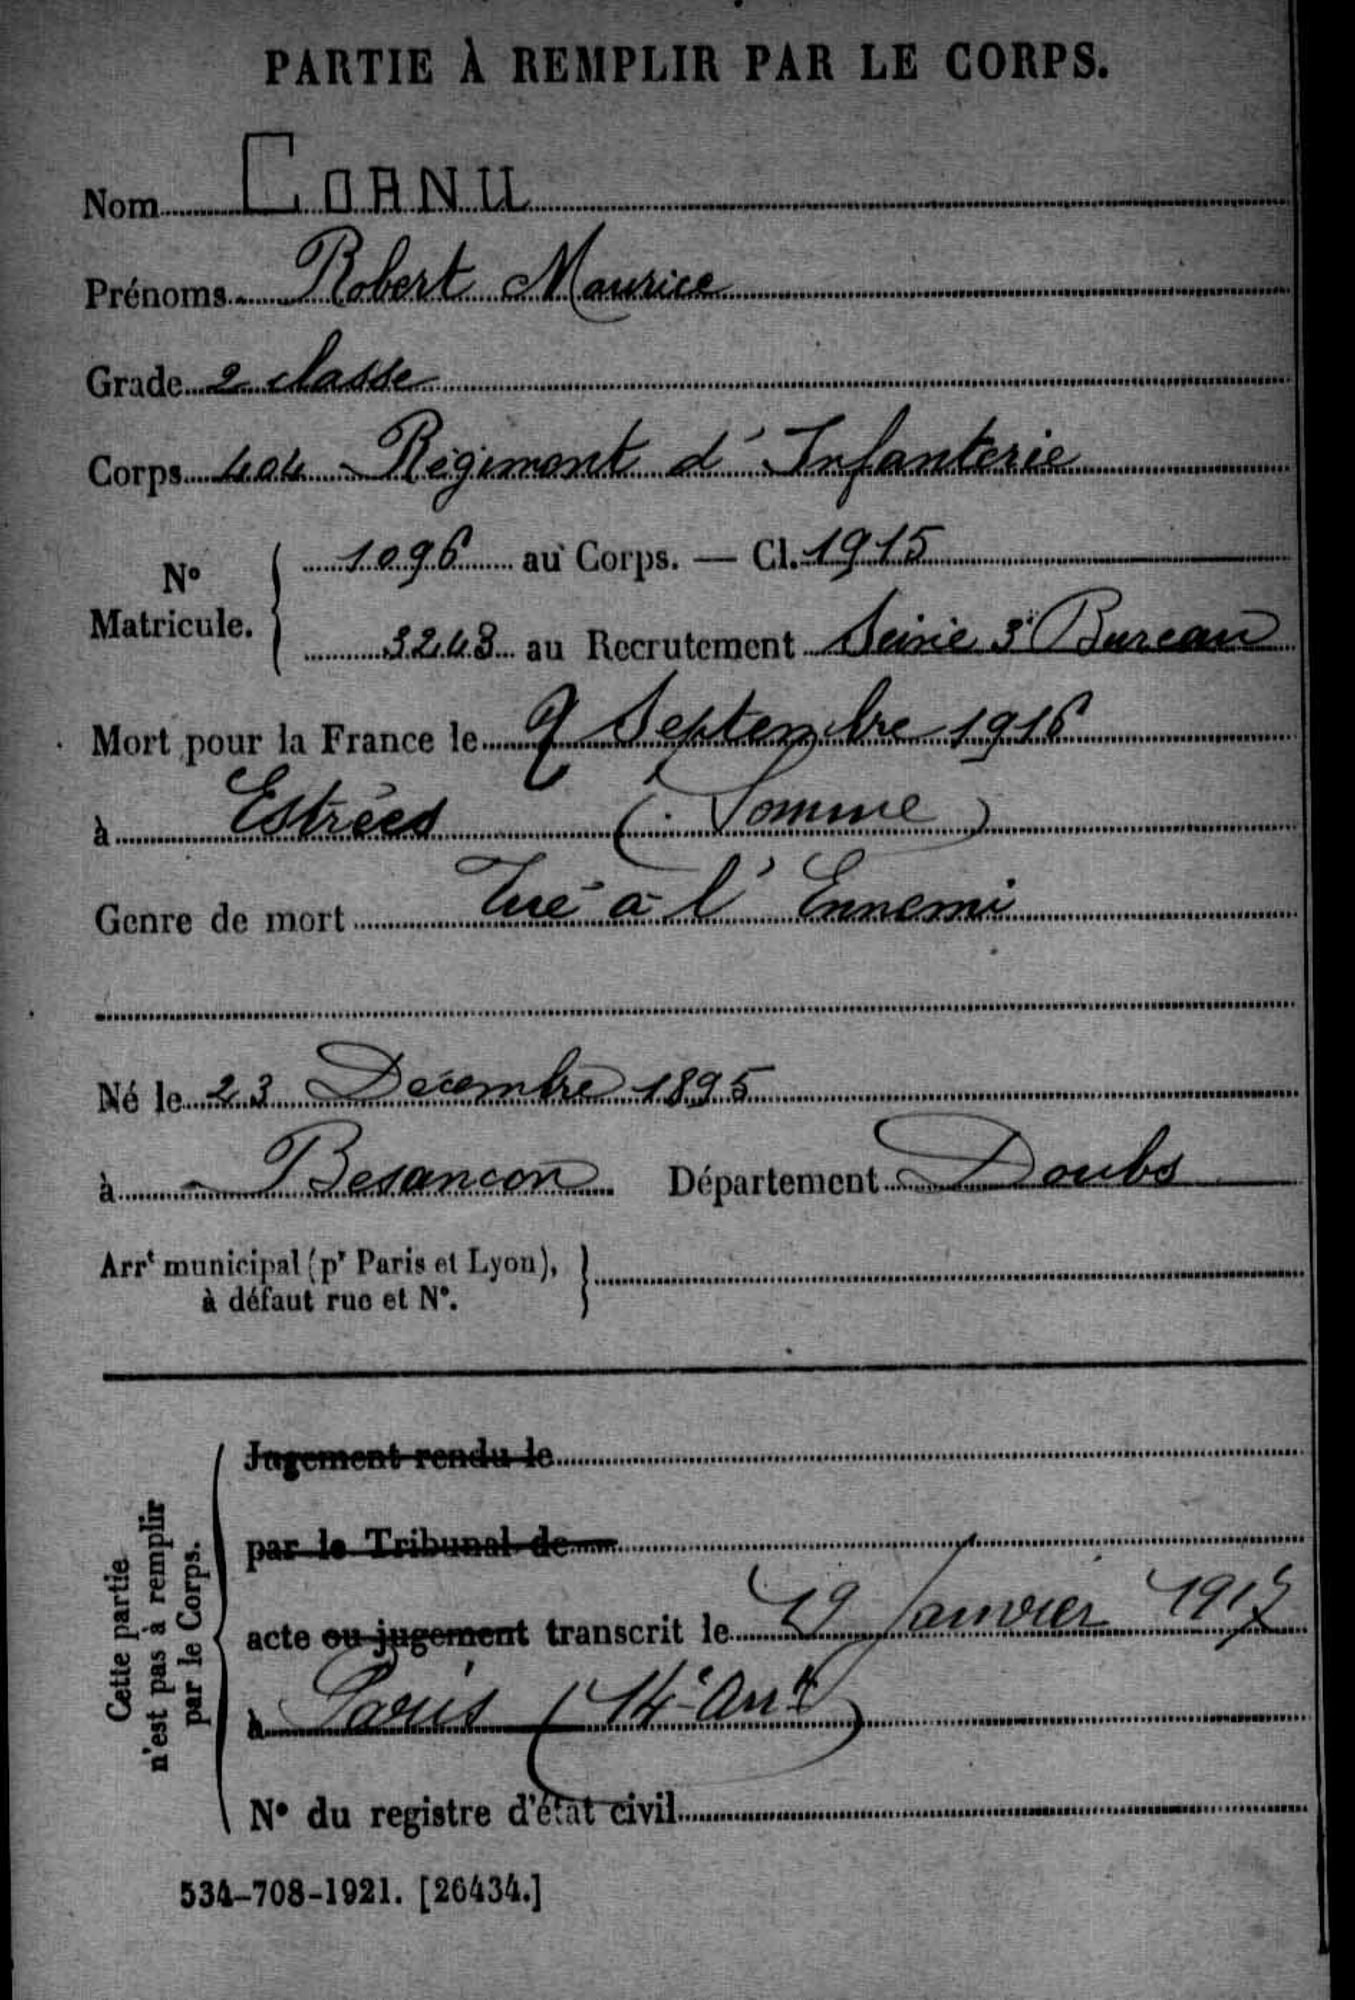 PARTIE À REMPLIR PAR LE CORPS.
Nom CORNU
Prénoms Robert Maurice
Grade 2 classe
Corps 404 Régiment d'Infanterie
N° Matricule. 1096 au Corps. — Cl. 1915
3243 au Recrutement Seine 3e Bureau
Mort pour la France le 9 Septembre 1916
à Estrées (Somme)
Genre de mort Tué à l'Ennemi
Né le 23 Décembre 1895
à Besancon Département Doubs
Arrt municipal (pr Paris et Lyon),
à défaut rue et N°.
Cette partie
n'est pas à remplir
par le Corps.
Jugement rendu le
par le Tribunal de
acte ou jugement transcrit le 19 Janvier 1917
à Paris (14e Arrt)
N° du registre d'état civil
534-708-1921. [26434.]